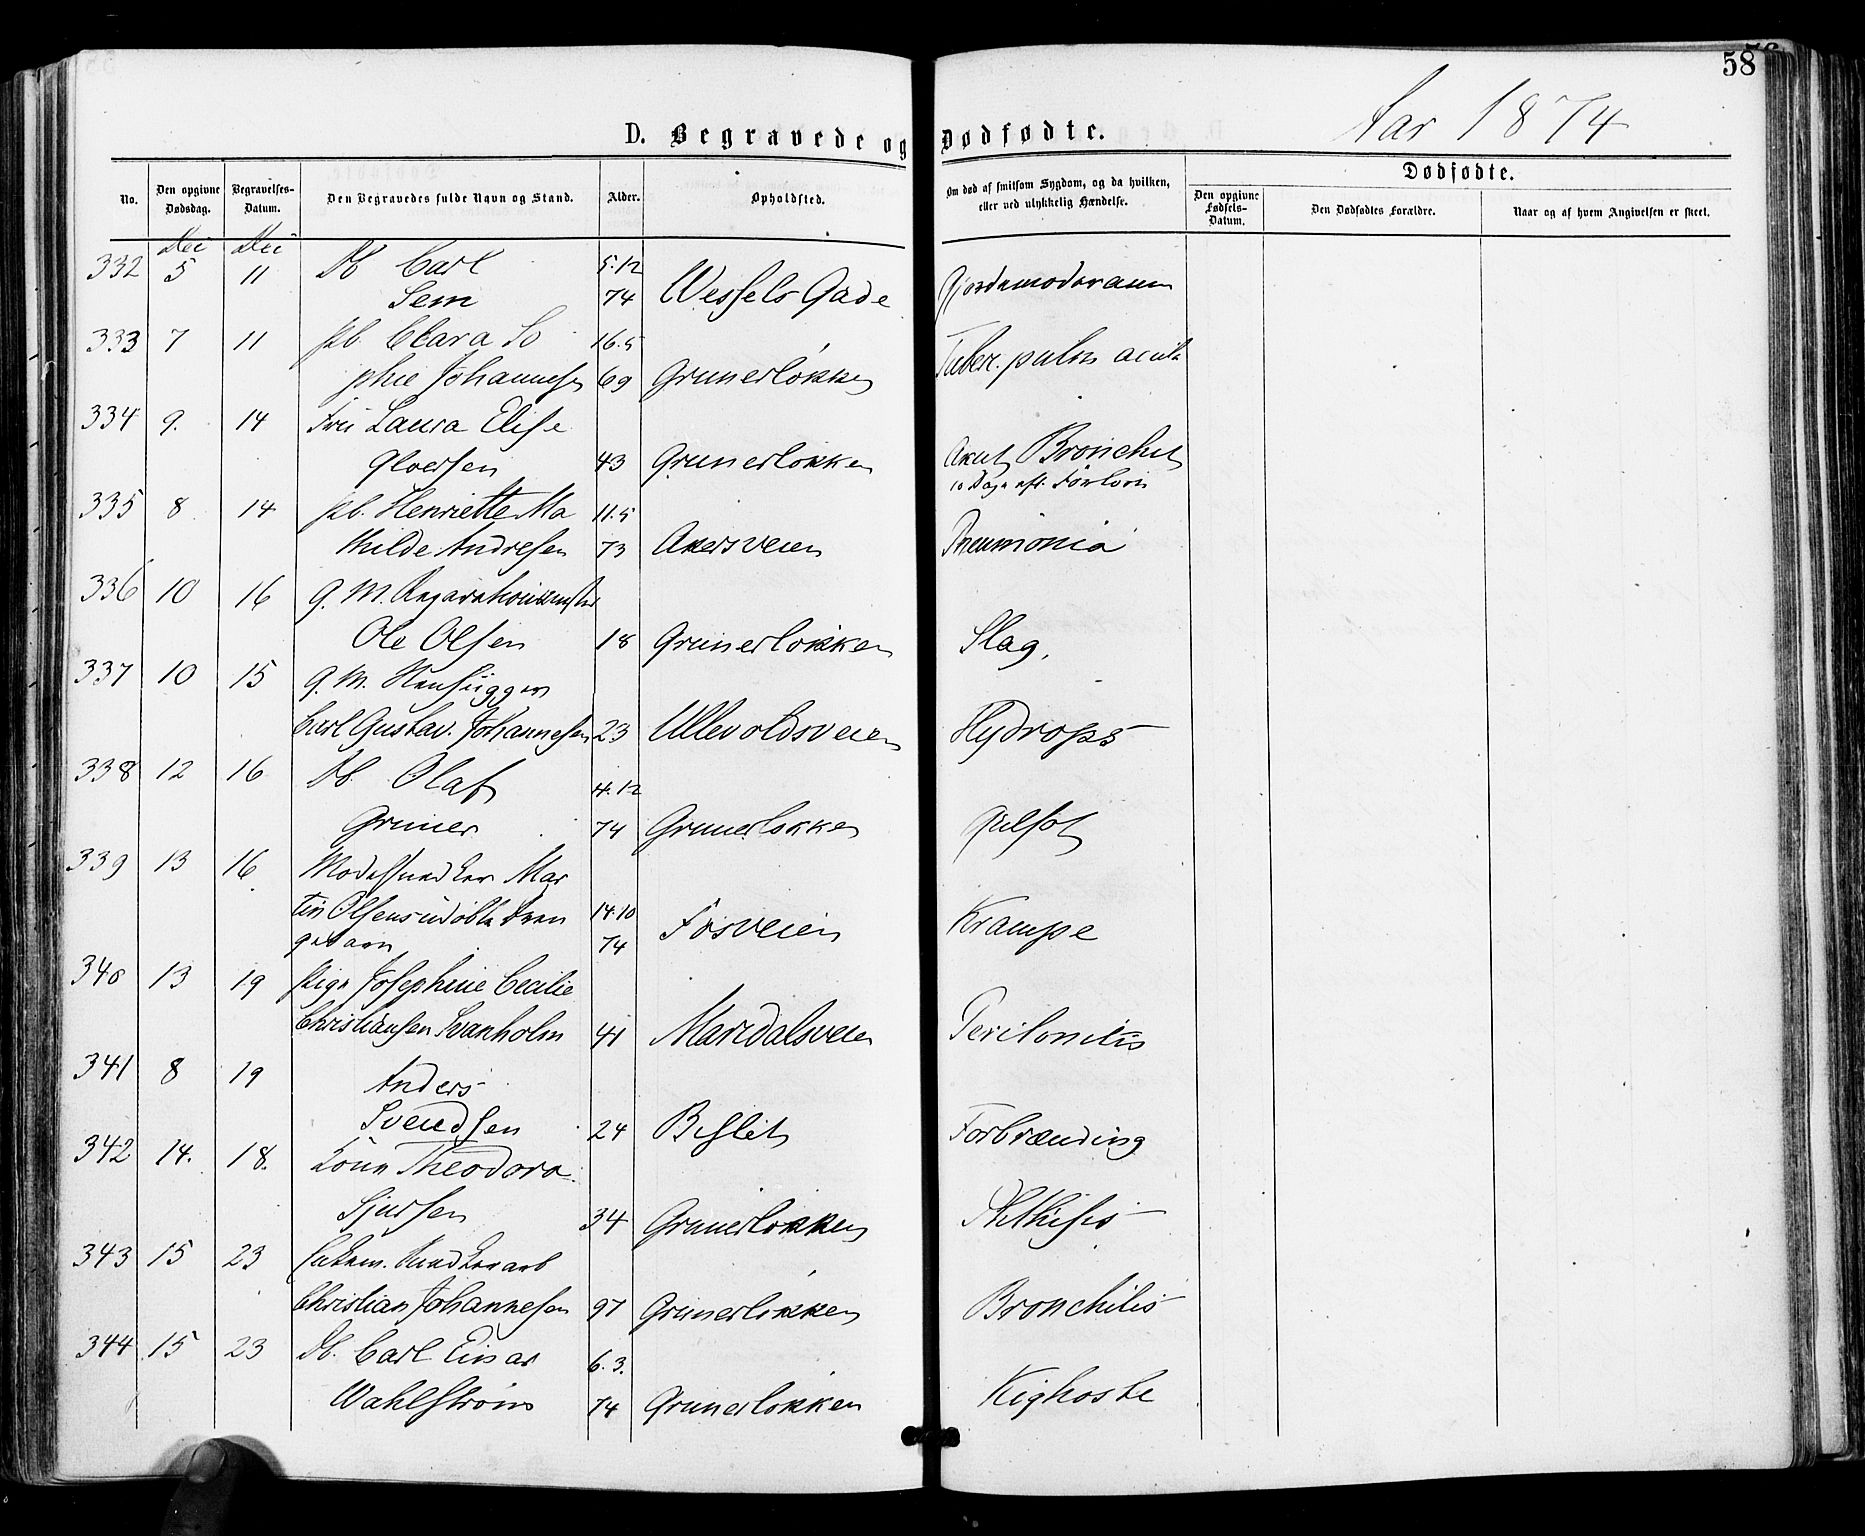 58
D. Begravede og Dødfødte.
Aar 1874
No.
Den opgivne Dødsdag.
Begravelses-Datum.
Den Begravedes fulde Navn og Stand.
Alder.
Opholdsted.
Om død af smitsom Sygdom, og da hvilken, eller ved ulykkelig Hændelse.
Dødfødte.
Den opgivne Fødsels-Datum.
Den Dødfødtes Forældre.
Naar og af hvem Angivelsen er skeet.
Mai Mai
332 5 11 Db Carl 5.12
Sem 74 Wessels Gade
333 7 11 Pb. Clara So 16.5 Tuber. pulm acuta
phie Johannesen 69 Grunerløkken
334 9. 14 Fru Laura Elise
Gloersen 43 Grunerløkken Akut Bronchit
10 Dage eft.
335 8 14 Pb. Henriette Ma 11.5
thilde Andresen 73 Akersveien Pneumonia
336 10 16 G. M.
Ole Olsen 18 Grunerløkken Slag.
337 10 15 G. M.
Carl Gustav. Johannesen 23 Ullevoldsveien Hydrops
338 12 16 Db. Olaf 4.12
Gruner 74 Grunerløkken Gulsot
339 13 16 Modelsnedker Mar
tin Olsens udøbte Dren 14.10
gebarn 74 Fosveien Krampe
340 13 19 Pige Josephine Cecilie
Christiansen Svanholm 41 Maridalsveien Peritonitis
341 8 19 Anders
Svendsen 24 Bislet Forbrænding
342 14. 18. Kone Theodora
Sjursen 34 Grunerløkken Phthisis
343 15 23 Snedkerarb
Christian Johannesen 97 Grunerløkken Bronchitis
344 15 23 Db. Carl Einar 6.3.
Wahlstrøm 74 Grunerløkken Kighoste